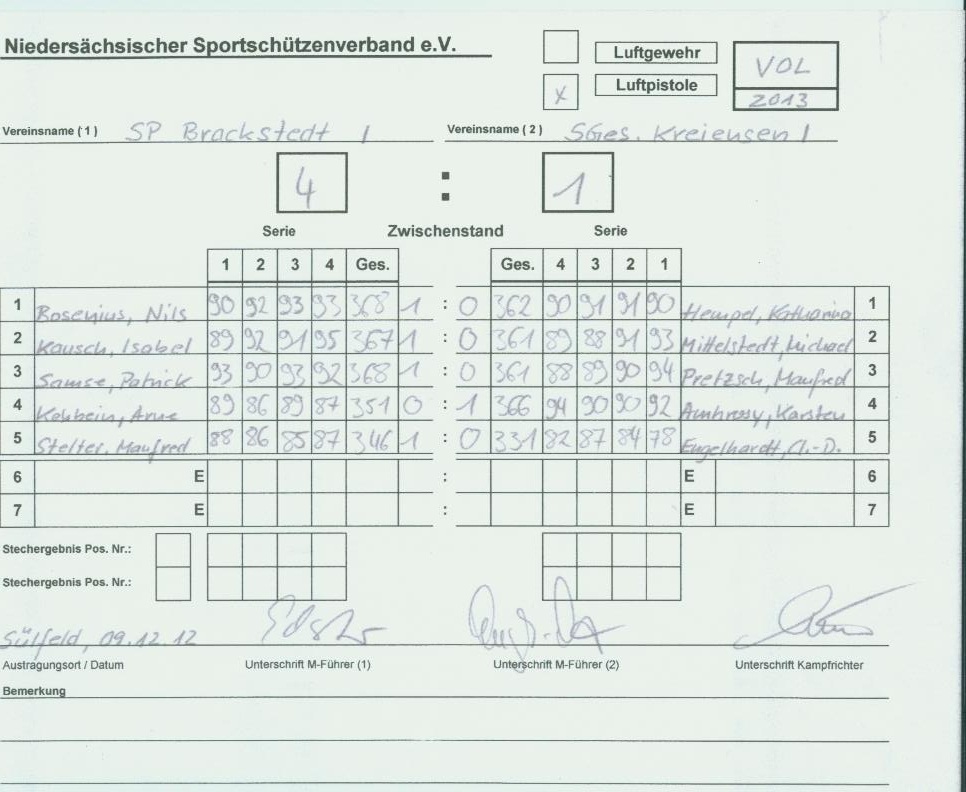 Niedersächsischer Sportschützenverband e.V.
Luftgewehr
VOL
X Luftpistole
2013
Vereinsname ( 1 ) SP Brackstedt I Vereinsname ( 2 ) SGes. Kreiensen I
4 : 1
Serie Zwischenstand Serie
1 2 3 4 Ges. Ges. 4 3 2 1
1 Rosenius, Nils 90 92 93 93 368 1 : 0 362 90 91 91 90 Hempel, Katharina 1
2 Kausch, Isabel 89 92 91 95 367 1 : 0 361 89 88 91 93 Mittelstedt, Michael 2
3 Samse, Patrick 93 90 93 92 368 1 : 0 361 88 89 90 94 Pretzsch, Manfred 3
4 Arne 89 86 89 87 351 0 : 1 366 94 90 90 92 Karsten 4
5 Stelter, Manfred 88 86 85 87 346 1 : 0 331 82 87 84 78 Engelhardt, Cl.-D. 5
6 E : E 6
7 E : E 7
Stechergebnis Pos. Nr.:
Stechergebnis Pos. Nr.:
Sülfeld, 09.12.12
Austragungsort / Datum Unterschrift M-Führer (1) Unterschrift M-Führer (2) Unterschrift Kampfrichter
Bemerkung